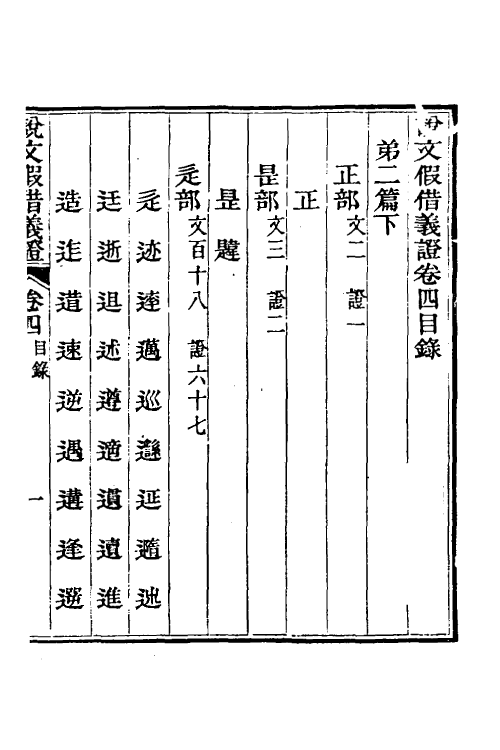 說文假借義證卷四目錄
弟二篇下
正部文二 證一
正
昰部文三 證二
昰 韙
辵部文百十八 證六十七
辵 迹 達 邁 巡 邍 延 隨 迆
迋 逝 退 述 遵 適 遺 遺 進
造 迮 遒 速 逆 遇 遘 逢 選
說文假借義證 卷四目錄 一